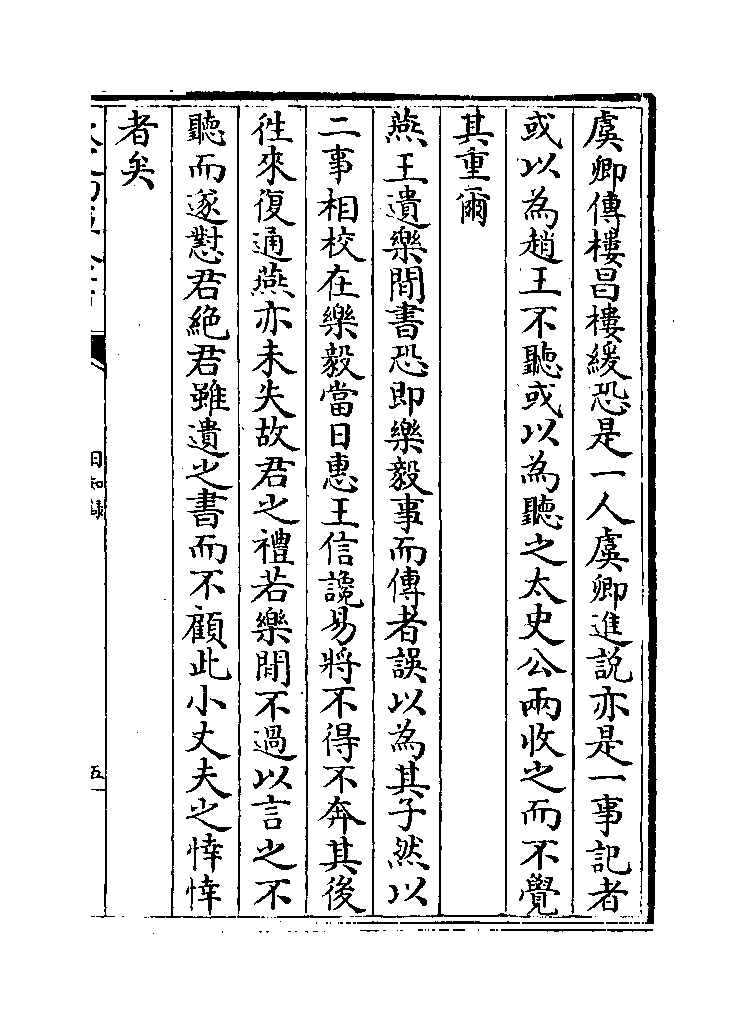 虞卿傳樓昌樓緩恐是一人虞卿進說亦是一事記者
或以為趙王不聽或以為聽之太史公兩收之而不覺
其重爾
燕王遺樂閒書恐即樂毅事而傳者誤以為其子然以
二事相校在樂毅當日惠王信讒易將不得不奔其後
徃來復通燕亦未失故君之禮若樂閒不過以言之不
聽而遂懟君絕君雖遺之書而不顧此小丈夫之悻悻
者矣
日知錄
五